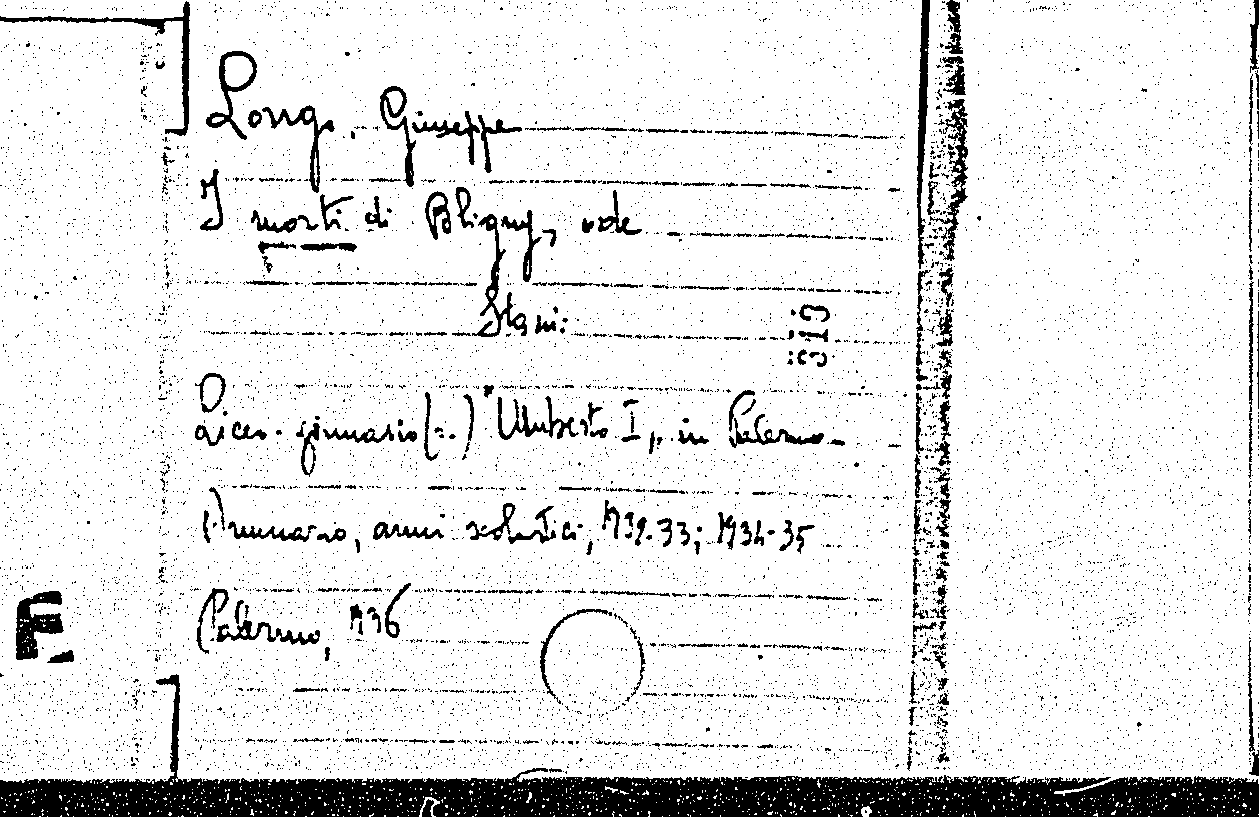 Longo, Giuseppe
I morti di Bligny, ode
Sta in:
319
Liceo-ginnasio (R.) "Umberto I", in Palermo
Annuario, anni scolastici, 1932-33; 1934-35
Palermo, 1936
F.